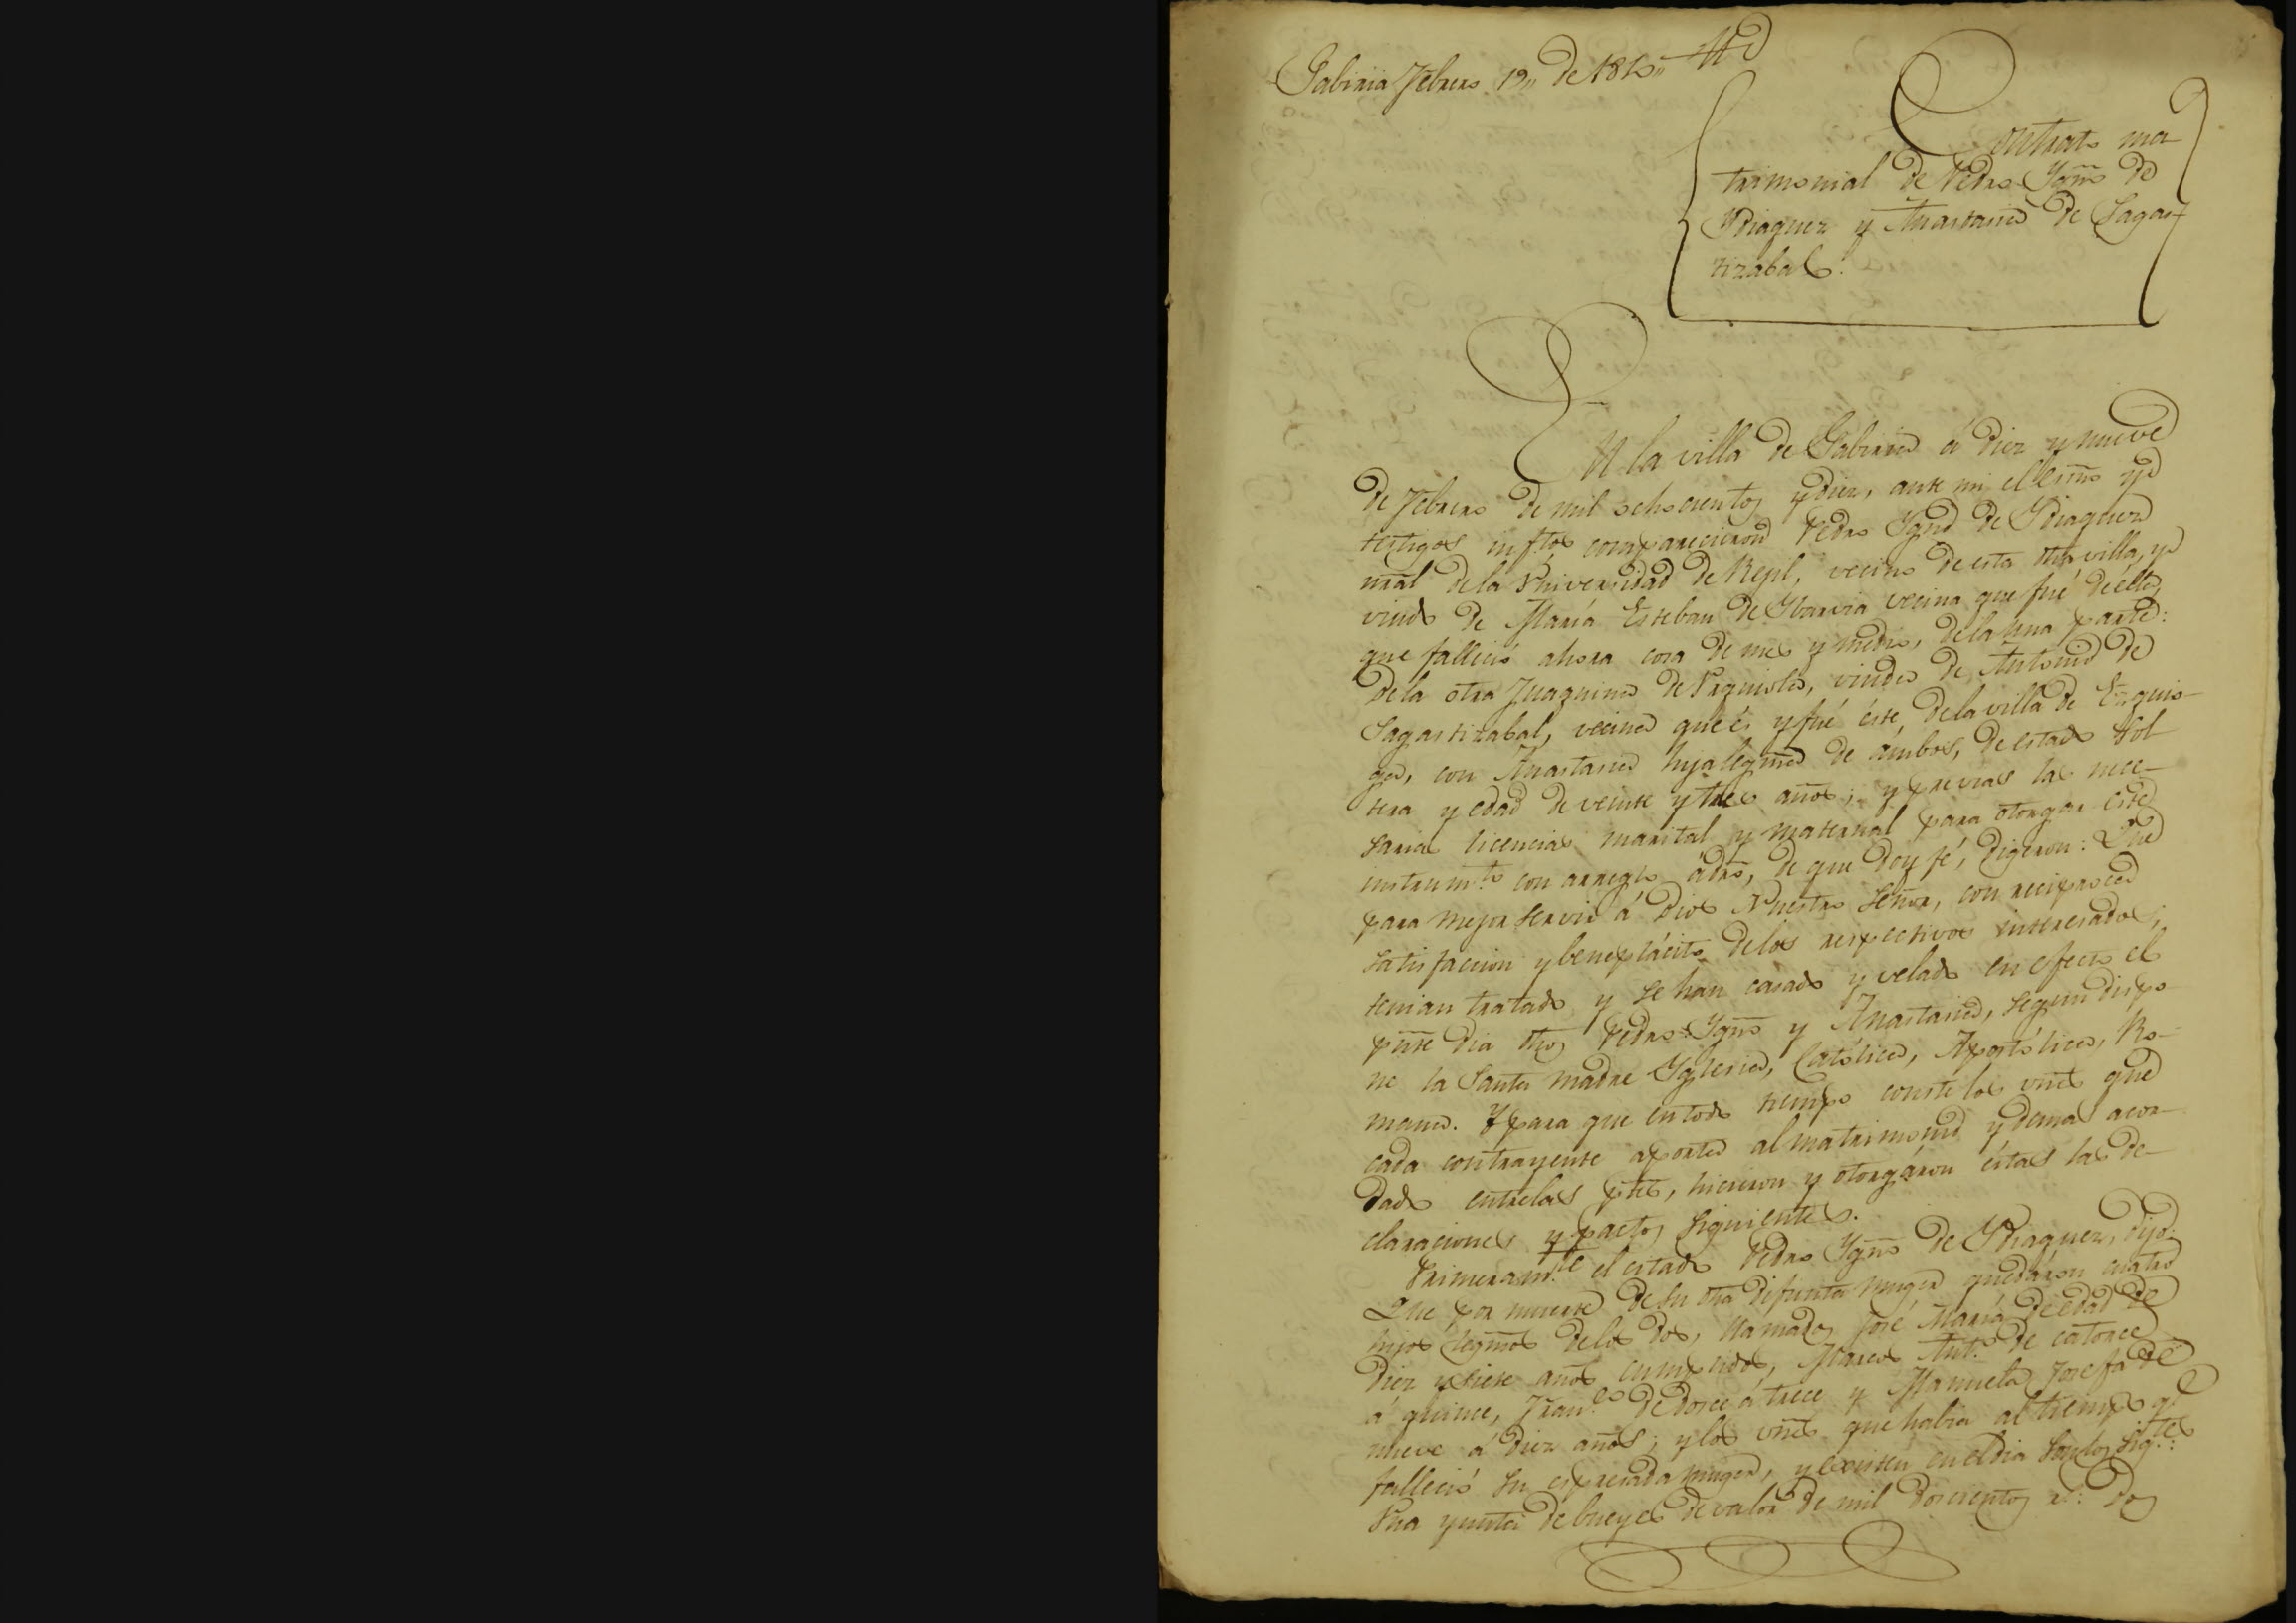 Gabiria Febrero 19,, de 1810,,
Contrato ma-
trimonial de Pedro Ygñō de
Ydiaquez y Anastasia de Sagas-
tizabal.
En la villa de Gabiria á diez y nueve
de Febrero de mil ochocientos y diez, ante mi el Esc͞no y
testigos inf.tos comparecieron Pedro Ygnō de Ydiaquez
nr͞al de la Universidad de Rejil, vecino de esta dh͞a villa, y
viudo de María Esteban de Ybarvia vecina que fué de ella,
que falleció ahora cosa de mes y medio, de la una parte:
de la otra Juaquina de Urquiola, viuda de Antonio de
Sagastizabal, vecina que és y fué éste, de la villa de Ezquio-
ga, con Anastasia hija legm͞a de ámbos, de estado Sol-
tera y edad de veinte y tres años; y previas las nece-
sarias licencias marital y maternal para otorgar este
instrum.to con arreglo á dr͞o, de que doy fé, digeron: Que
para mejor servir á Dios Nuestro Señor, con reciproca
satisfaccion y beneplácito de los respectivos interesados,
tenian tratado y se han casado y velado en efecto el
pn͞te dia dh͞os Pedro Ygn͞o y Anastasia, segun dispo-
ne la Santa madre Yglesia, Católica, Apostólica, Ro-
mana. Y para que en todo tiempo conste los vn͞es que
cada contrayente aporta al matrimonio y demas acor-
dado entre las pt͞es, hicieron y otorgáron éstas las de-
claraciones y pactos siguientes.
Primeram.te el citado Pedro Ygn͞o de Ydiaquez, dijo:
Que por muerte de su dh͞a difunta muger quedáron cuatro
hijos legm͞os de los dos, llamados José María de edad de
diez y siete años cumplidos, Marcos Ant.o de catorce
á quince, Fran.co de doce á trece y Manuela Josefa de
nueve á diez años; y los vn͞es que habia al tiempo q.e
falleció su espresada muger, y existen en el dia son los sig.tes:
Una yunta de bueyes de valor de mil doscientos r.s: dos